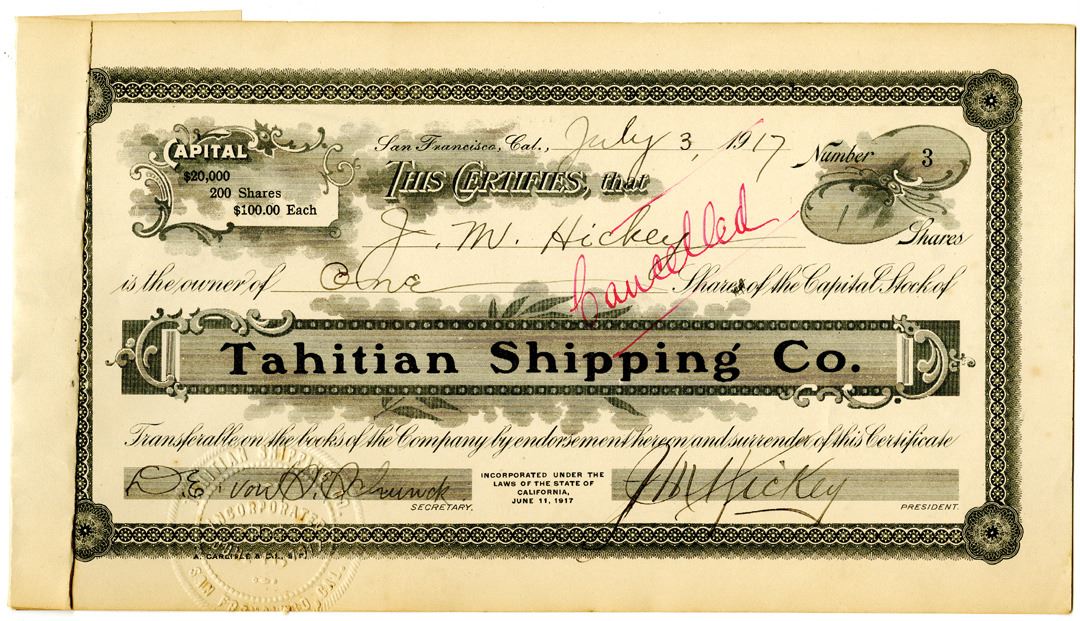 CAPITAL
$20,000
200 Shares
$100.00 Each
San Francisco, Cal., July 3, 1917
Number 3
THIS CERTIFIES, that
1 Shares
J. M. Hickey
Cancelled
is the owner of One Shares of the Capital Stock of
Tahitian Shipping Co.
Transferable on the books of the Company by endorsement hereon and surrender of this Certificate
INCORPORATED UNDER THE
LAWS OF THE STATE OF
CALIFORNIA,
JUNE 11, 1917
D. E. von
SECRETARY.
J M Hickey
PRESIDENT.
A. CARLISLE & CO., S.F.
INCORPORATED